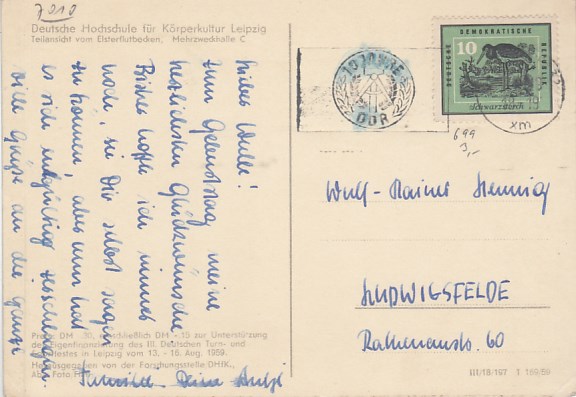 7010
Deutsche Hochschule für Körperkultur Leipzig
Teilansicht vom Elsterflutbecken, Mehrzweckhalle C
zum Geburtstag meine
herzlichsten Glückwünsche
Bisher hoffte ich immer
noch, sie Dir selbst sagen
zu können, aber nun hat
es sich endgültig zerschlagen.
Viele Grüße an die ganze
Deine
DM -,15 zur Unterstützung
der Eigenfinanzierung des III. Deutschen Turn- und
Sportfestes in Leipzig vom 13. - 16. Aug. 1959.
Herausgegeben von der Forschungsstelle DHfK.,
III/18/197 1 159/59
DEUTSCHE DEMOKRATISCHE REPUBLIK
10
Schwarzstorch
10 JAHRE
DDR
xm
699
3,-
Wulf-Rainer Hennig
LUDWIGSFELDE
Rathenaustr. 60